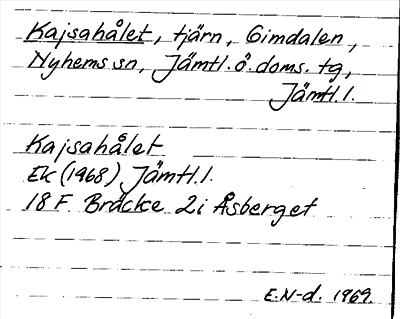 Kajsahålet, tjärn, Gimdalen,
Nyhems sn, Jämtl. ö. doms. tg,
Jämtl.l.
Kajsahålet
Ek (1968) Jämtl.l.
18 F Bräcke 2 i Åsberget
E.N-d. 1969.